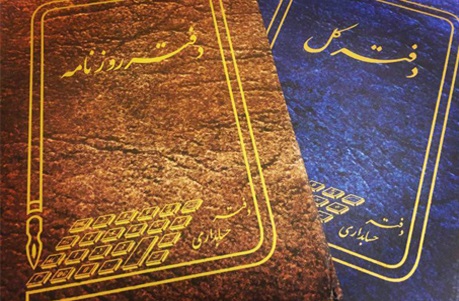 دفتر روزنامه
دفتر
حسابداری
دفتر کل
دفتر
حسابداری